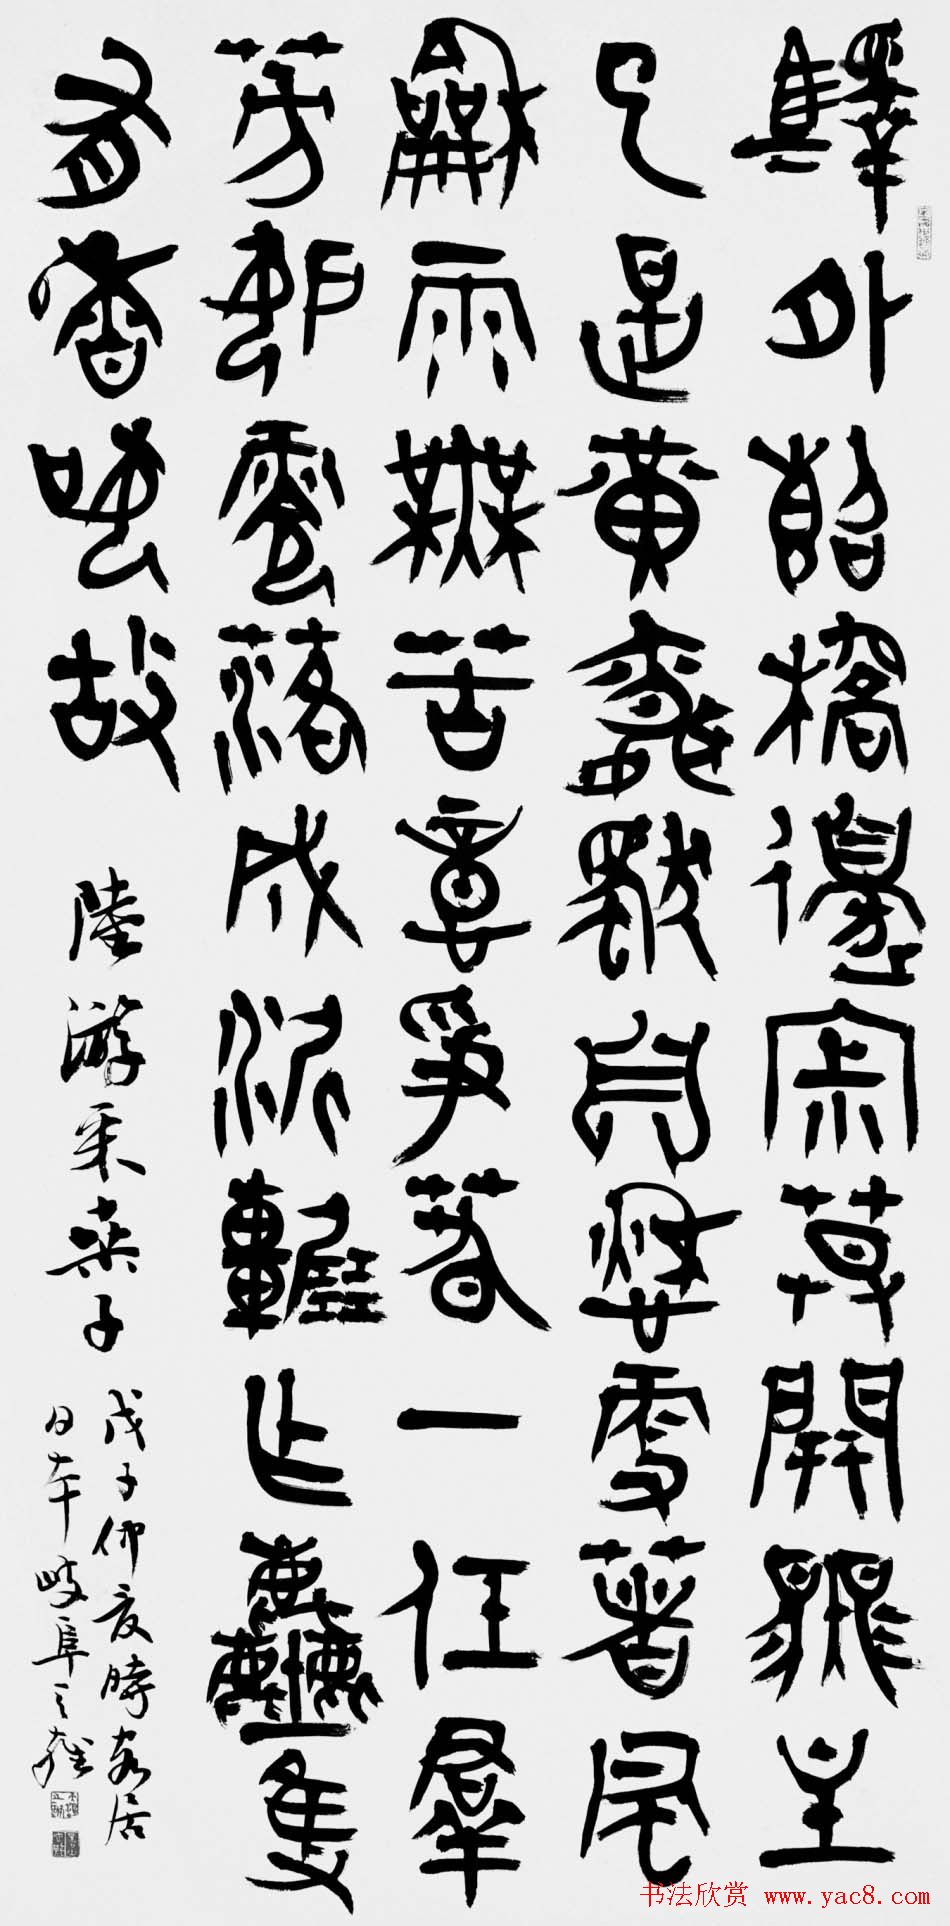 驛外斷橋邊寂莫開無主
已是黃昏獨自愁雪著風
龢雨無苦意爭春一任羣
芳妒零落成泥輾作塵隻
有香如故 陸游采桑子
戊子仲夏時客居
日本岐阜
书法欣赏 www.yac8.com